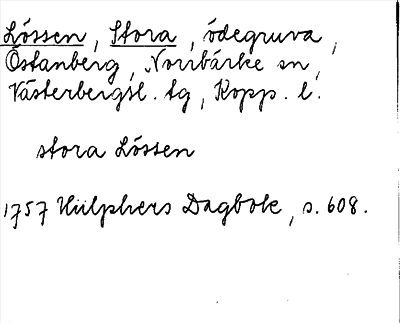 Lössen, Stora, ödegruva,
Östanberg, Norrbärke sn,
Västerbergsl. tg, Kopp. l.
stora Lössen
1757 Hülphers Dagbok, s. 608.